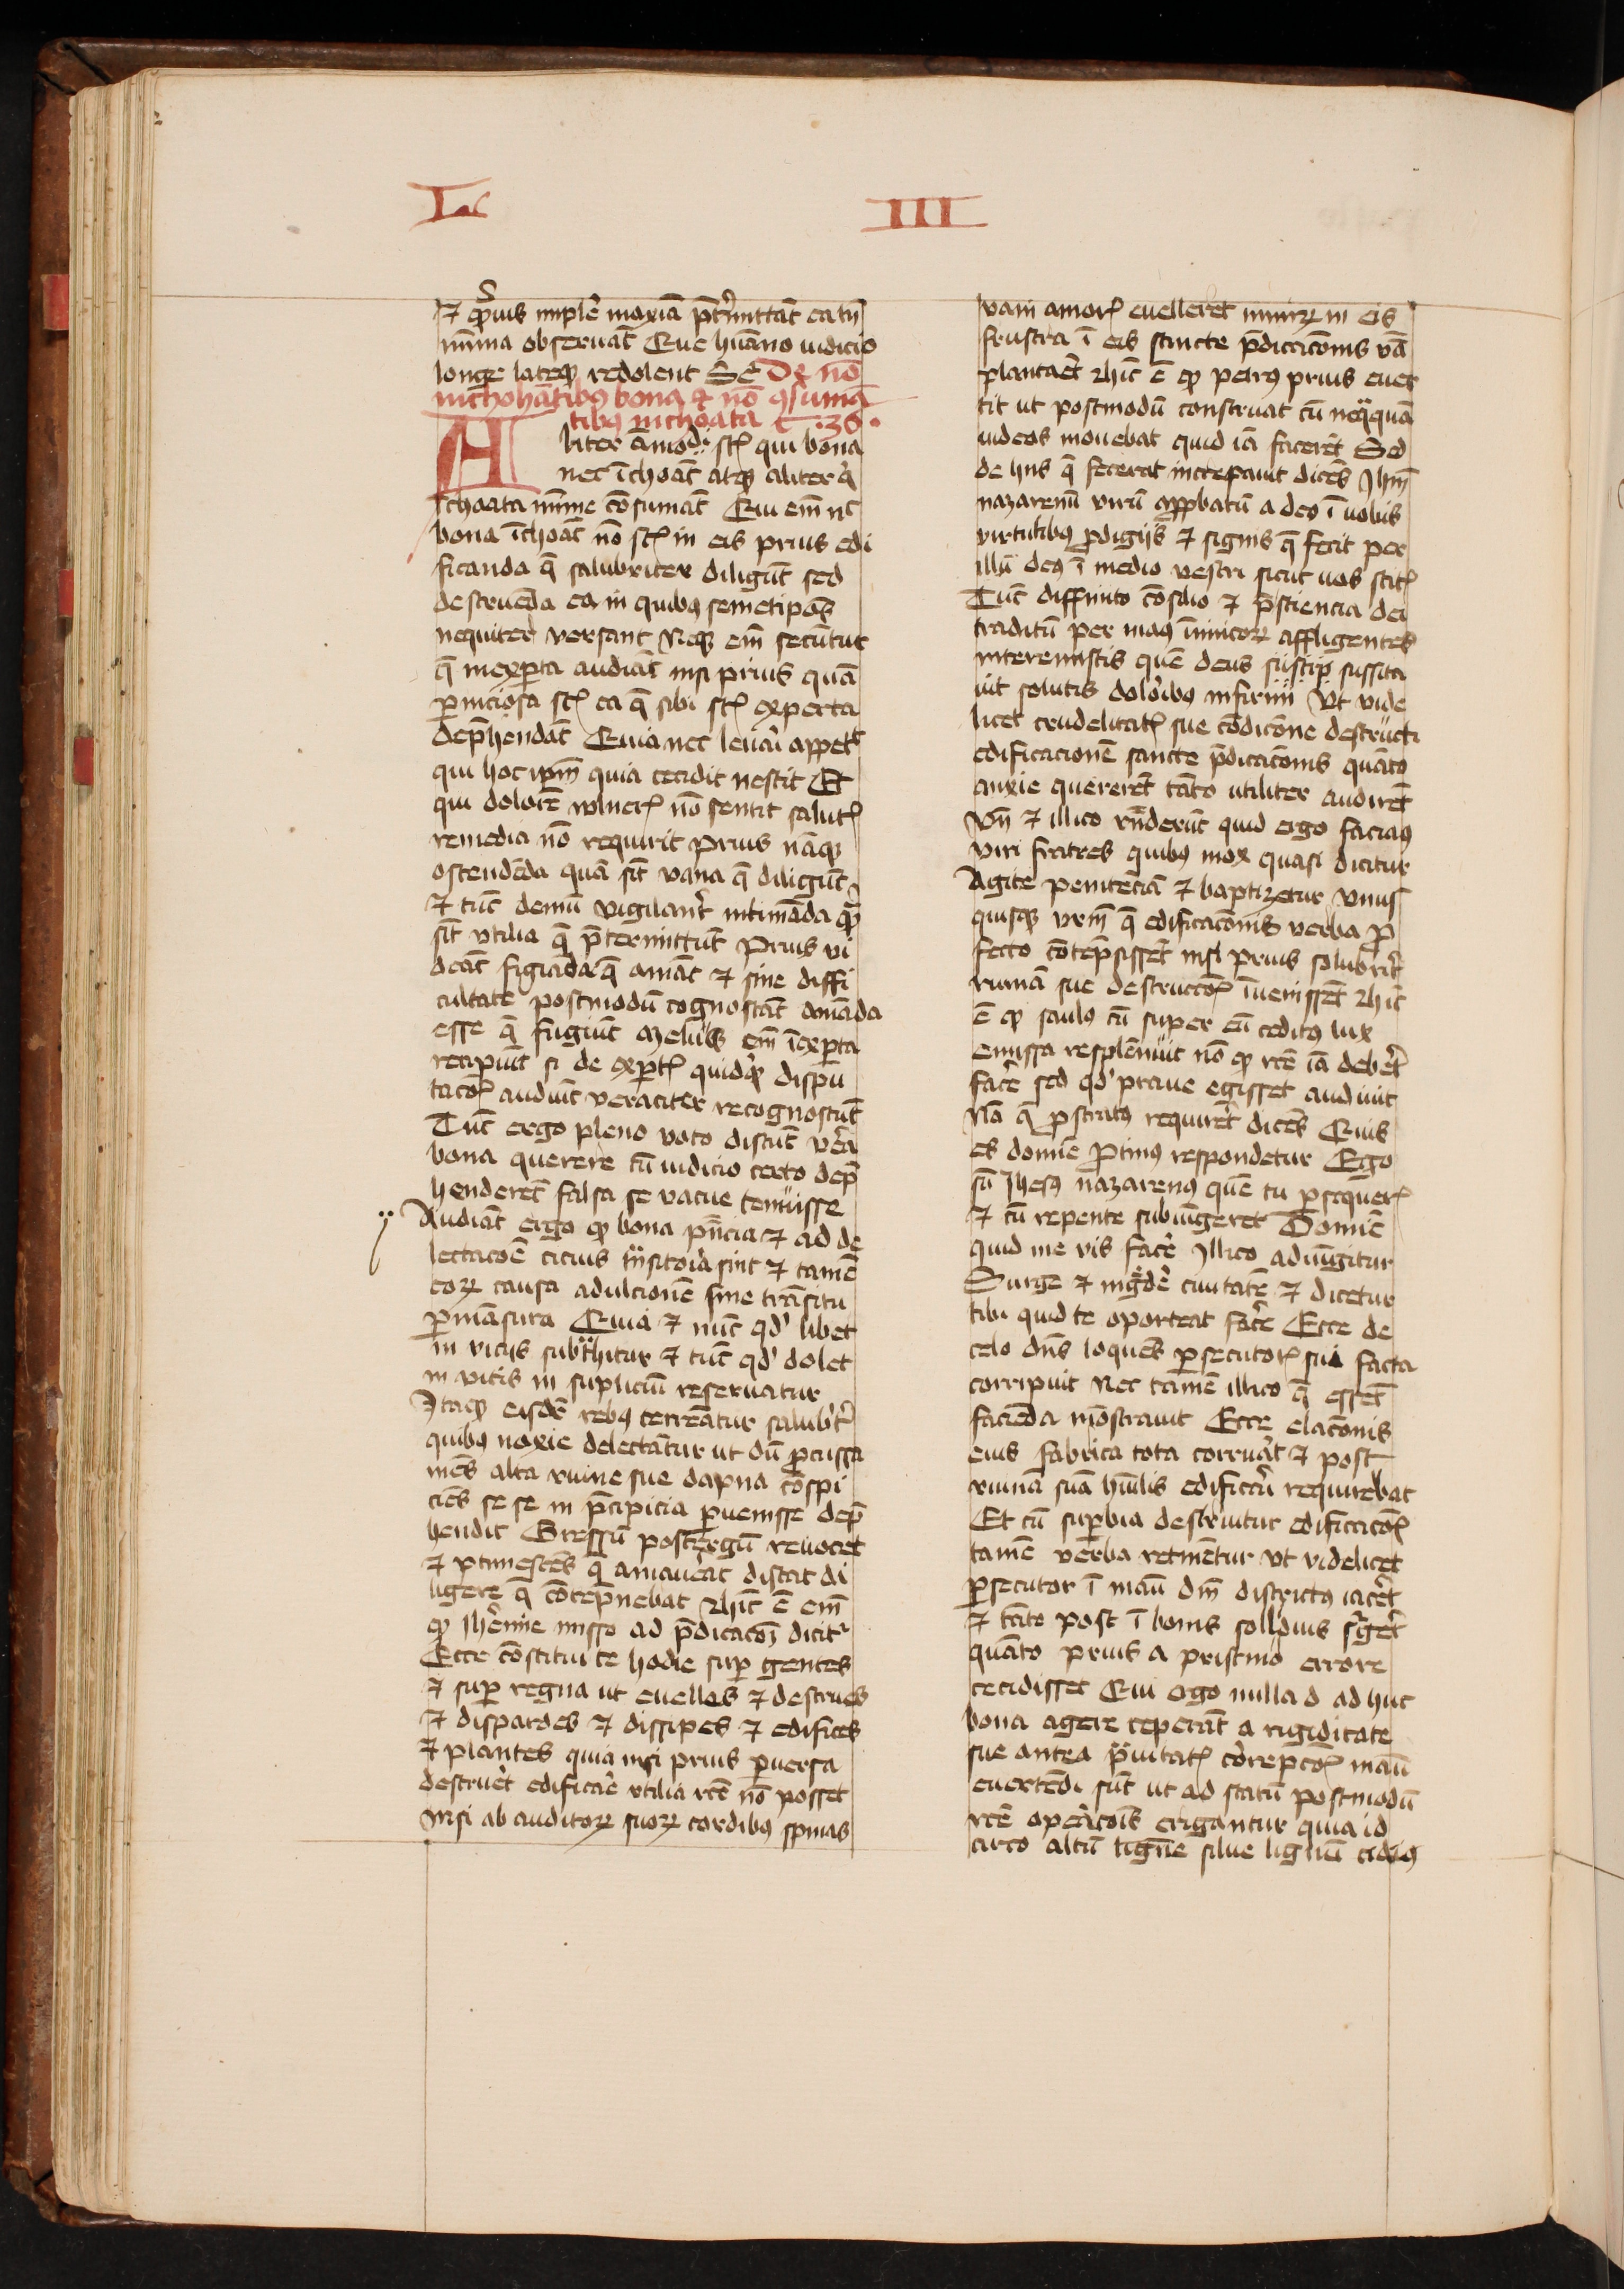 L III
⁊ qͥuis implē maxīa p̄tͥmittāt ea tn̄
mīma obseruāt Que hūano iudicio
longe lateqꝫ redolent Sꝫ De nō
inchohātibꝰ bona ⁊ nō ꝯsumā
tibꝰ inchoata C .36.
Aliter āmodi st̄ qui bona
nec īchoāt atqꝫ aliter q̇
īchoata mīme cōsumāt Qui em̄ nͨ
bona īchoāt nō st̄ in eis prius edi
ficanda q̄ salubriter diligūt sed
destruēda ea in quibꝰ semetipōs
nequiter versant Neqꝫ em̄ secūtur
q̄ inexꝑta audiāt nisi prius quā
ꝑniciosa st̄ ea q̄ sibi st̄ experta
dep̄hendāt Quia nec leuari appetͭ
qui hoc ip̄m quia cecidit nescit Et
qui dolorē wlnerꝭ nō sentit salutꝭ
remedia nō requirit Prius nāqꝫ
ostendēda quā sīt vana q̄ diligūt
⁊ tūc demū vigilant̄ intimāda qͣꝫ
sīt vtilia q̄ p̄termittūt Prius vi
deāt figiāda q̄ amāt ⁊ sine diffi
cultate postmodū cognoscāt amāda
esse q̄ fugiūt Meliꝰ em̄ īexꝑta
recipiūt si de exꝑtꝭ quidqͥꝫ dispu
tacōꝭ audiūt veraciter recognoscūt
Tūc ergo pleno voto discūt vēa
bona querere cū iudicio certo dep̄
henderēt falsa se vacue tenuisse
Audiāt ergo qꝫ bona pn̄cia ⁊ ad de
lectacōē cicius tͣnsitoīa sint ⁊ tamē
eoꝝ causa adulcionē sine trāsitu
ꝑmāsura Quia ⁊ nūc qd̓ libet
in vicijs subtͣhitur ⁊ tūc qd̓ dolet
in vitis in supliciū reseruatur
Itaqꝫ eisdē rebꝰ terreātur salubīt̄
quibꝰ noxie delectātur ut dū ꝑcussa
mēs alta ruine sue dapna cōspi
ciēs se se in p̄cipicia ꝑuenisse dep̄
hendit Gressū posttergū reuocet
⁊ ꝑtimescēs q̄ amauerat discat di
ligere q̄ cōtēpnebat Ꝛhīc ē em̄
qꝫ Jhēmie misso ad p̄dicacōꝫ dicitᷣ
Ecce cōstitui te hodie suꝑ gentes
⁊ suꝑ regna ut euelles ⁊ destrues
⁊ disperdes ⁊ dissipes ⁊ edifices
⁊ plantes quia nisi prius ꝑuersa
destruēt edificāe vtilia rc̄e nō posset
Nisi ab auditoꝝ suoꝝ cordibꝰ spinas
vani amorꝭ euelleret nimiꝝ in eis
frustra ī eis sancte p̄dicacōnis v̄ā
plantāet Ꝛhīc ē qꝫ petrꝰ prius euer
tit ut postmodū construat cū neqͣquā
iudeos mouebat quid iā facerēt Sed
de hiis q̄ fecerāt increpauit dicēs Jhm̄
nazarenū virū apꝓbatū a deo ī uobis
virtutibꝰ ꝓdigijs ⁊ signis q̄ fecit per
illū deꝰ ī medio vestri sicut uos scitꝭ
Tūc diffinito cōsilio ⁊ p̄sciencia dei
traditū per manꝰ īnimicoꝝ affligentes
interemistis quē deus suscita
uit solutis dolōibꝰ inferni Vt vide
licet crudelitatꝭ sue cōdicōne destructi
edificacionē sancte p̄dicacōnis quāto
anxie quererēt tāto utiliter audirēt
Vn̄ ⁊ illico rn̄derūt quid ergo faciaꝰ
viri fratres quibꝰ mox quasi dicitur
Agite penitēciā ⁊ baptizetur vnus
quisqꝫ vrm̄ q̄ edificacōnis verba ꝓ
fecto cōtēpsissēt nisi prius salubrit̄
ruinā sue destruccōꝭ īuenissēt Ꝛhīc
ē qꝫ saulꝰ cū super eū celitꝰ lux
emissa resplēnuit nō qꝫ rc̄e iā debēt̄
facē sed qd̓ praue egisset audiuit
Nā q̄ ꝓstratꝰ requirēt dicēs Quis
es domīe ꝓtinꝰ respondetur Ego
sū Jhesꝰ nazarenꝰ quē tu ꝑsequerꝭ
⁊ cū repente subiūgeret Domīe
quid me vis facē Illico adiūgitur
Surge ⁊ ingͬdēe ciuitatē ⁊ dicetur
tibi quid te oporteat facē Ecce de
celo dn̄s loquēs ꝑsecutorꝭ sui facta
corripuit Nec tamē illico q̄ essēt
faciēda mōstrauit Ecce elacōnis
eius fabrica tota corruāt ⁊ post
ruinā suā hūilis edificari requirebat
Et cū suꝑbia destruitur edificacōꝭ
tamē verba retinētur Vt videlicet
ꝑsecutor ī manu dm̄ districtꝰ iacēt
⁊ tāto post ī bonis solidius sͬgēt
quāto prius a pristino errore
cecidisset Qui ergo nulla ad huc
bona agere ceperāt a rigiditate
sue antea pͣuitatꝭ corepcōꝭ manu
euertēdi sūt ut ad statū postmodū
rc̄e opeācōis erigantur quia id
circo altū silue lignū